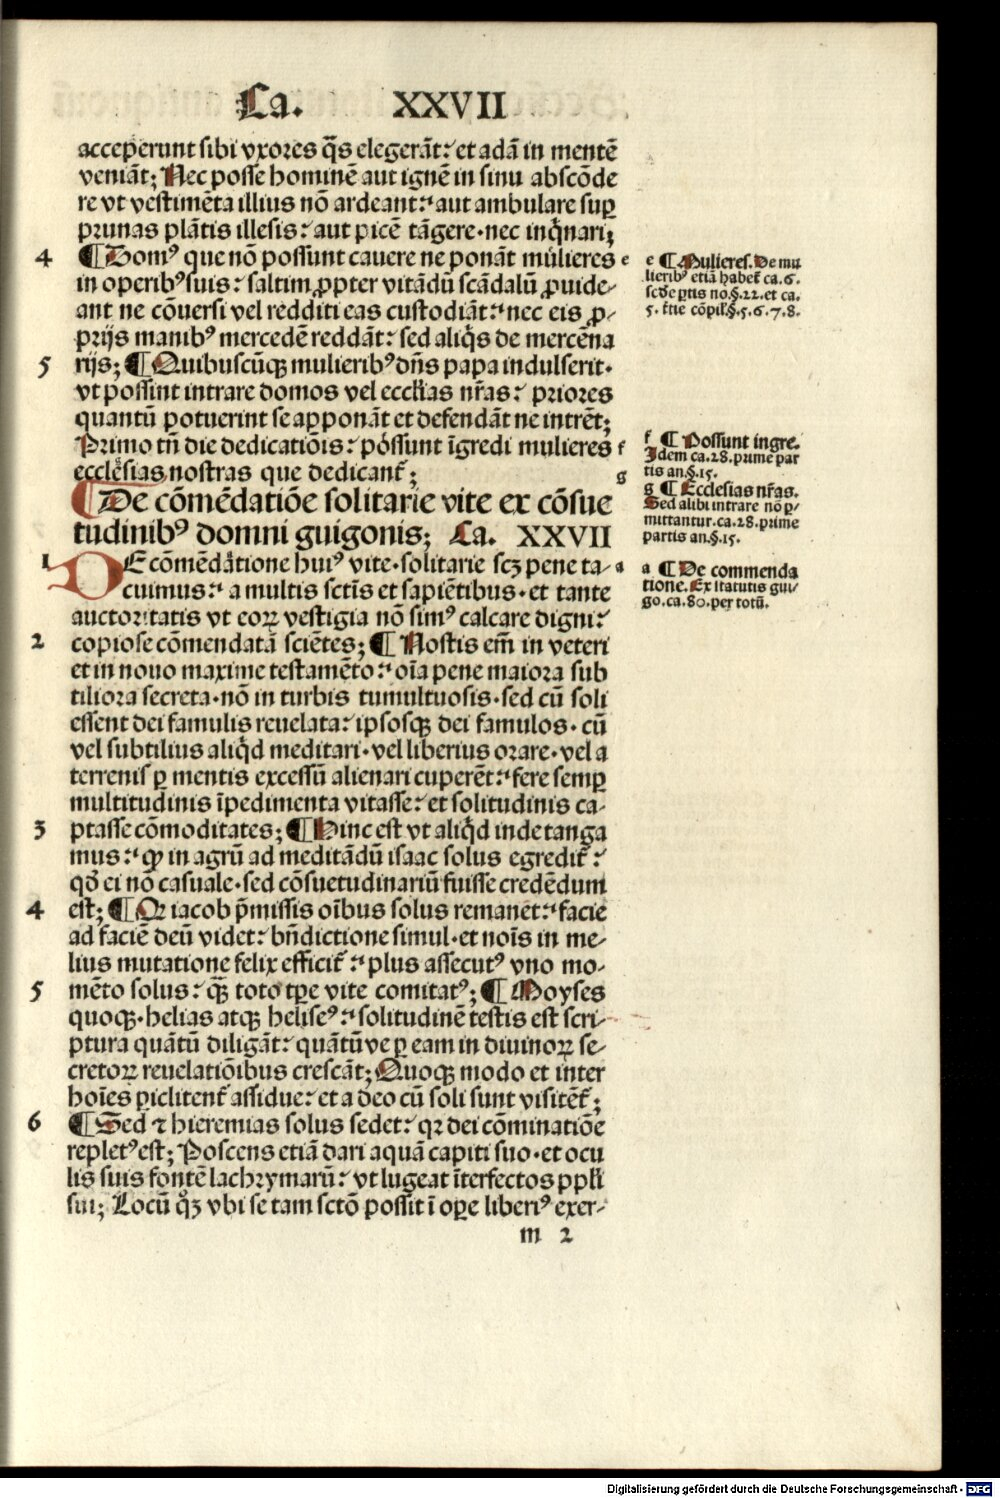 Ca. XXVII
acceperunt sibi vxores q̄s elegerāt: et adā in mentē
veniāt; Nec posse hominē aut ignē in sinu abscōde
re vt vestimēta illius nō ardeant: aut ambulare suꝑ
prunas plātis illesis: aut picē tāgere·nec inq̄nari;
4 ¶ Domꝰ que nō possunt cauere ne ponāt mulieres e
in operibꝰ suis: saltim ꝓpter vitādū scādalū ꝓuide-
ant ne cōuersi vel redditi eas custodiāt: nec eis ꝓ-
prijs manibꝰ mercedē reddāt: sed aliq̄s de mercēna
5 rijs; ¶ Quibuscūqꝫ mulieribꝰ dn̄s papa indulserit·
vt possint intrare domos vel eccl̄ias nr̄as: priores
quantū potuerint se apponāt et defendāt ne intrēt;
Primo tn̄ die dedicatiōis: possunt īgredi mulieres f
ecclesias nostras que dedicant̄; g
De cōmēdatiōe solitarie vite ex cōsue
tudinibꝰ domni guigonis; Ca. XXVII
1 DE cōmēdatione huiꝰ vite·solitarie scꝫ pene ta- a
cuimus: a multis sctīs et sapiētibus·et tante
auctoritatis vt eoꝝ vestigia nō simꝰ calcare digni:
2 copiose cōmendatā sciētes; ¶ Nostis em̄ in veteri
et in nouo maxime testamēto: oīa pene maiora sub
tiliora secreta·nō in turbis tumultuosis·sed cū soli
essent dei famulis reuelata: ipsosqꝫ dei famulos·cū
vel subtilius aliq̄d meditari·vel liberius orare·vel a
terrenis ꝑ mentis excessū alienari cuperēt: fere semꝑ
multitudinis īpedimenta vitasse: et solitudinis ca-
3 ptasse cōmoditates; ¶ Hinc est vt aliq̄d inde tanga
mus: ꝙ in agrū ad meditādū isaac solus egredit̄:
qd̄ ei nō casuale·sed cōsuetudinariū fuisse credēdum
4 est; ¶ Qꝛ iacob p̄missis oībus solus remanet: facie
ad faciē deū videt: bn̄dictione simul·et noīs in me-
lius mutatione felix efficit̄: plus assecutꝰ vno mo-
5 mēto solus: q̄ꝫ toto tꝑe vite comitatꝰ; ¶ Moyses
quoqꝫ·helias atqꝫ heliseꝰ: solitudinē testis est scri-
ptura quātū diligāt: quātūve ꝑ eam in diuinoꝝ se-
cretoꝝ reuelatiōibus crescāt; Quoqꝫ modo et inter
hoīes ꝑiclitent̄ assidue: et a deo cū soli sunt visitēt̄;
6 ¶ Sed ⁊ hieremias solus sedet: qꝛ dei cōminatiōe
repletꝰ est; Poscens etiā dari aquā capiti suo·et ocu
lis suis fontē lachrymarū: vt lugeat īterfectos ppl̄i
sui; Locū q̊ꝫ vbi se tam sctō possit ī oꝑe liberiꝰ exer-
m 2
e ¶ Mulieres. De mu
lieribꝰ etiā habet̄ ca.6.
scd̄e ꝑtis no.§.22.et ca.
5. t̄tie cōpil̄.§.5.6.7.8.
f ¶ Possunt ingre.
Idem ca.28.prime par
tis an.§.15.
g ¶ Ecclesias nr̄as.
Sed alibi intrare nō ꝑ-
mittantur.ca.28.prime
partis an.§.15.
a ¶ De commenda
tione. Ex statutis gui-
go.ca.80.per totū.
Digitalisierung gefördert durch die Deutsche Forschungsgemeinschaft - DFG